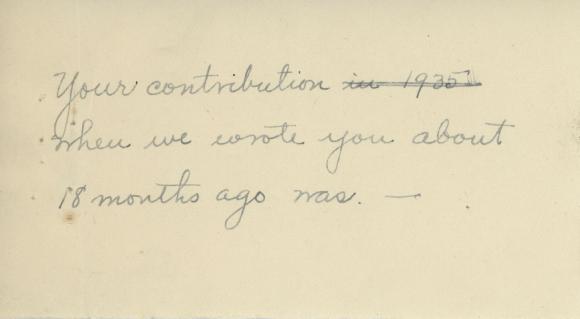 Your contribution in 1935
when we wrote you about
18 months ago was. —